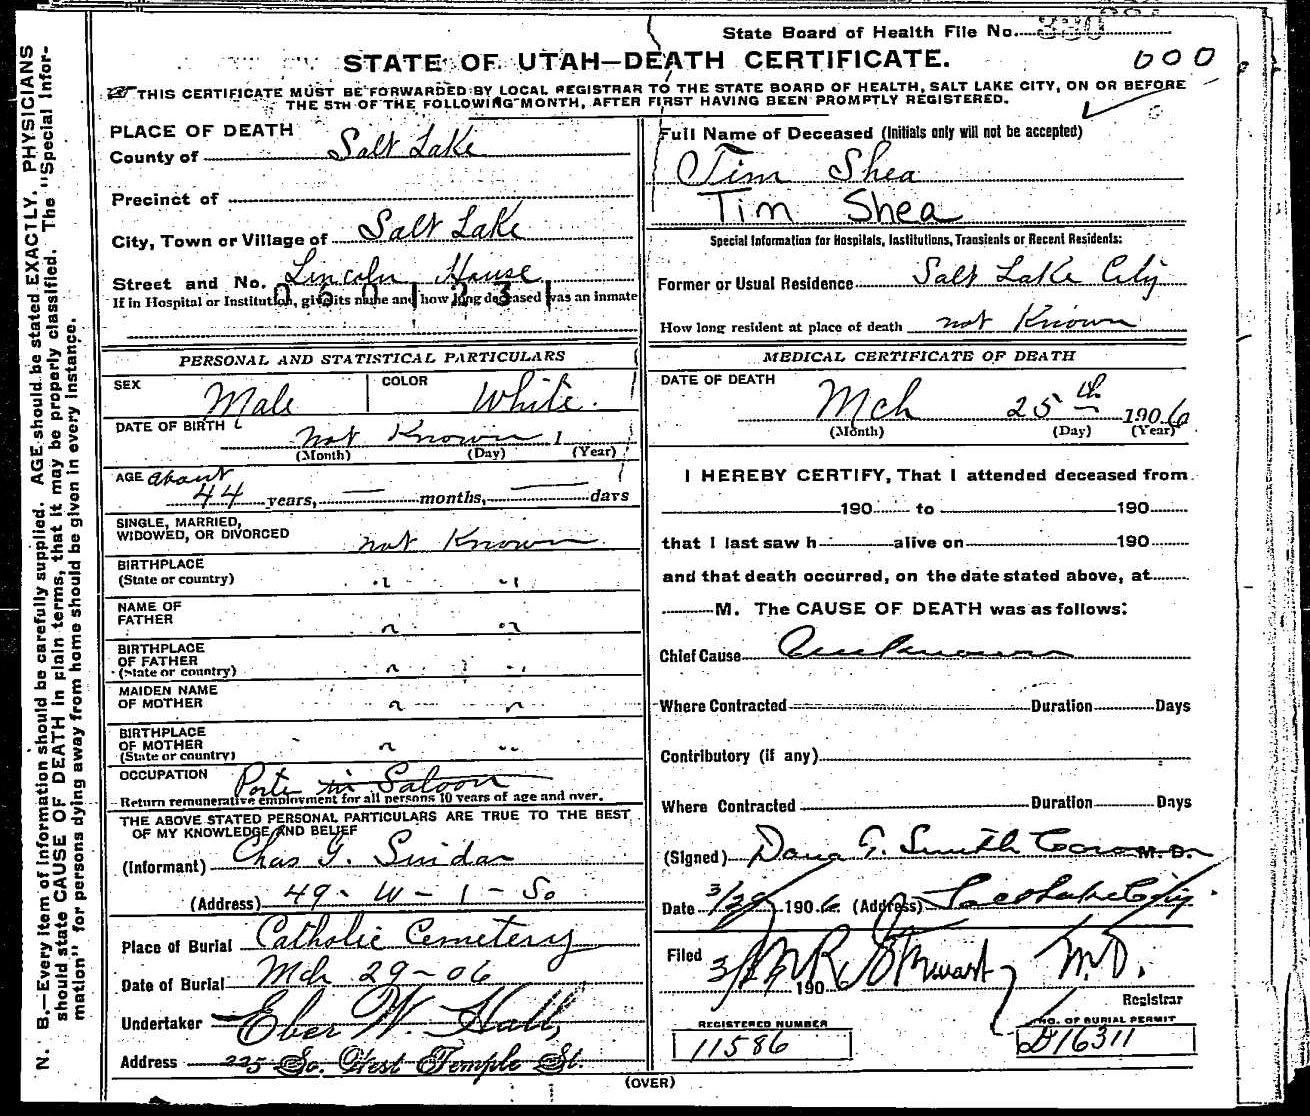 State Board of Health File No. 330
STATE OF UTAH—DEATH CERTIFICATE.
000
THIS CERTIFICATE MUST BE FORWARDED BY LOCAL REGISTRAR TO THE STATE BOARD OF HEALTH, SALT LAKE CITY, ON OR BEFORE
THE 5TH OF THE FOLLOWING MONTH, AFTER FIRST HAVING BEEN PROMPTLY REGISTERED.
N. B.—Every item of information should be carefully supplied. AGE should be stated EXACTLY. PHYSICIANS
should state CAUSE OF DEATH in plain terms, that it may be properly classified. The "Special Infor-
mation" for persons dying away from home should be given in every instance.
PLACE OF DEATH
County of Salt Lake
Precinct of
City, Town or Village of Salt Lake
Street and No. Lincoln House
0501231
If in Hospital or Institution, give its name and how long deceased was an inmate
PERSONAL AND STATISTICAL PARTICULARS
SEX Male COLOR White.
DATE OF BIRTH not Known 1
(Month) (Day) (Year)
AGE about
44 years, — months, — days
SINGLE, MARRIED,
WIDOWED, OR DIVORCED not Known
BIRTHPLACE
(State or country) " "
NAME OF
FATHER " "
BIRTHPLACE
OF FATHER
(State or country) " "
MAIDEN NAME
OF MOTHER " "
BIRTHPLACE
OF MOTHER
(State or country) " "
OCCUPATION Porter in Saloon
Return remunerative employment for all persons 10 years of age and over.
THE ABOVE STATED PERSONAL PARTICULARS ARE TRUE TO THE BEST
OF MY KNOWLEDGE AND BELIEF
(Informant) Chas G.
(Address) 49 - W - 1 - So
Place of Burial Catholic Cemetery
Date of Burial Mch 29-06
Undertaker Eber W. Hall,
Address 225 So. West Temple St.
Full Name of Deceased (Initials only will not be accepted)
Tim Shea
Tim Shea
Special Information for Hospitals, Institutions, Transients or Recent Residents:
Former or Usual Residence Salt Lake City
How long resident at place of death not Known
MEDICAL CERTIFICATE OF DEATH
DATE OF DEATH
Mch 25th 1906
(Month) (Day) (Year)
I HEREBY CERTIFY, That I attended deceased from
190 to 190
that I last saw h alive on 190
and that death occurred, on the date stated above, at
M. The CAUSE OF DEATH was as follows:
Chief Cause Unknown
Where Contracted Duration Days
Contributory (if any)
Where Contracted Duration Days
(Signed) Dana T. Smith Coroner M. D.
Date 3/29 1906 (Address) Salt Lake City.
Filed 3/29 190 M R Stewart M.D.
Registrar
REGISTERED NUMBER
11586
NO. OF BURIAL PERMIT
D16311
(OVER)